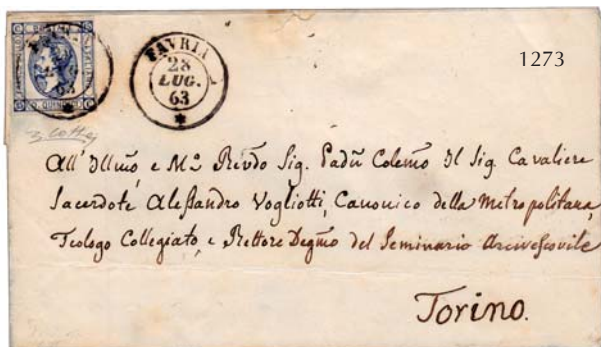 C POSTE S
FAVRIA
28
LUG.
63
1273
All' Illmo, e Mo Revdo Sig. Padn Colemo Il Sig. Cavaliere
Sacerdote Aleſsandro Vogliotti, Canonico della Metropolitana,
Teologo Collegiato, e Rettore Degmo del Seminario Arciveſcovile
Torino.